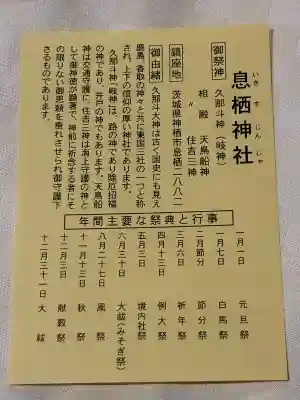 いきすじんじゃ
息栖神社
御祭神 久那斗神（岐神）
相殿 天鳥船神
〃 住吉三神
鎮座地 茨城県神栖市息栖二八八二
御由緒 久那斗大神は古く国史にも見え
鹿島、香取の神々と共に東国三社の一つと称
され、上下の信仰の厚い神社であります。
久那斗神（岐神）は、路の神であり除厄招福
の神であり、井戸の神でもあります。天鳥船
神は交通守護に、住吉三神は海上守護の神と
して御神徳が顕著で、神前に祈念する者にそ
の限りない御恩頼を垂れさせられ御守護下
さるものであります。
年間主要な祭典と行事
一月一日 元旦祭
一月七日 白馬祭
二月節分 節分祭
三月六日 祈年祭
四月十三日 例大祭
五月三日 境内社祭
六月三十日 大祓（みそぎ祭）
八月二十七日 風祭
十一月十三日 秋祭
十二月三日 献穀祭
十二月三十一日 大祓